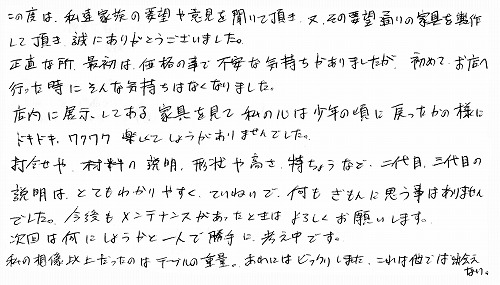 この度は、私達家族の要望や意見を聞いて頂き、又、その要望通りの家具を製作
して頂き、誠にありがとうございました。
正直な所、最初は、価格の事で不安な気持ちがありましたが、初めてお店へ
行った時にそんな気持ちはなくなりました。
店内に展示してある家具を見て私の心は少年の頃に戻ったかの様に
ドキドキ、ワクワク 楽しくてしょうがありませんでした。
打合せや、材料の説明、形状や高さ、特ちょうなど、二代目、三代目の
説明は、とてもわかりやすく、ていねいで、何もぎもんに思う事はありません
でした。今後もメンテナンスがあったときはよろしくお願いします。
次回は何にしようかと一人で勝手に考え中です。
私の想像以上だったのはテーブルの重量。あれにはビックリしました、これは他では出会え
ない。